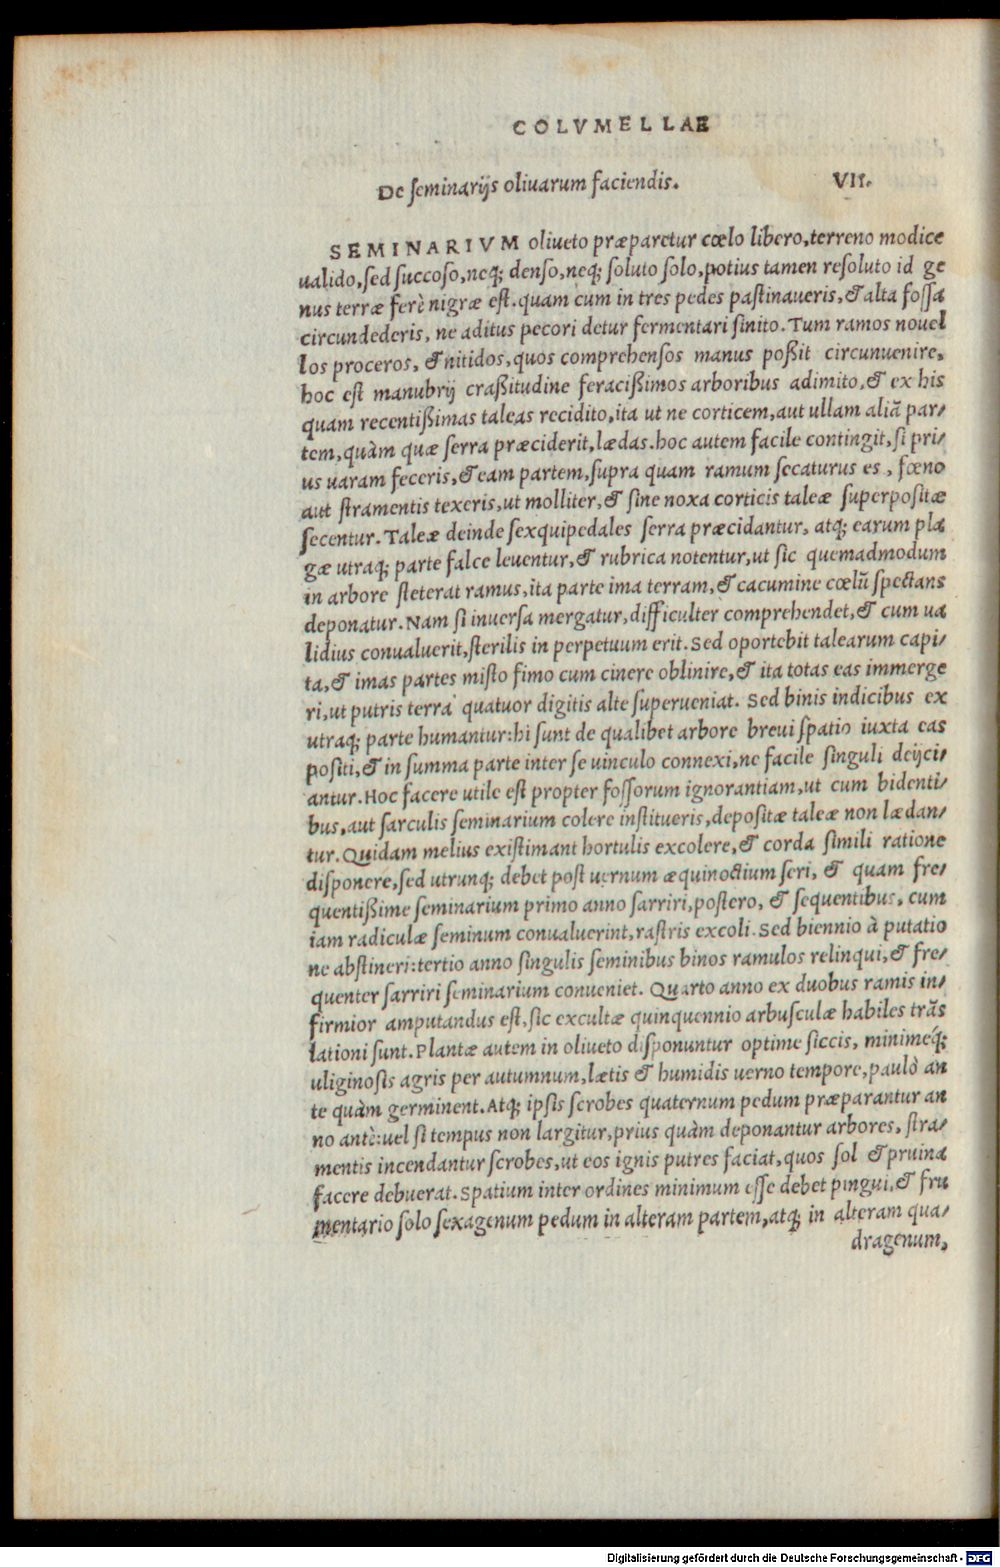 COLVMELLAE
De seminarijs oliuarum faciendis. VII.
SEMINARIVM oliueto præparetur cœlo libero, terreno modice
ualido, sed succoso, neq; denso, neq; soluto solo, potius tamen resoluto id ge
nus terræ ferè nigræ est. quam cum in tres pedes pastinaueris, & alta fossa
circundederis, ne aditus pecori detur fermentari sinito. Tum ramos nouel
los proceros, & nitidos, quos comprehensos manus poßit circunuenire,
hoc est manubrij craßitudine feracißimos arboribus adimito, & ex his
quam recentißimas taleas recidito, ita ut ne corticem, aut ullam aliã par/
tem, quàm quæ serra præciderit, lædas. hoc autem facile contingit, si pri/
us uaram feceris, & eam partem, supra quam ramum secaturus es, fœno
aut stramentis texeris, ut molliter, & sine noxa corticis taleæ superpositæ
secentur. Taleæ deinde sexquipedales serra præcidantur, atq; earum pla
gæ utraq; parte falce leuentur, & rubrica notentur, ut sic quemadmodum
in arbore steterat ramus, ita parte ima terram, & cacumine cœlũ spectans
deponatur. Nam si inuersa mergatur, difficulter comprehendet, & cum ua
lidius conualuerit, sterilis in perpetuum erit. Sed oportebit talearum capi/
ta, & imas partes misto fimo cum cinere oblinire, & ita totas eas immerge
ri, ut putris terra quatuor digitis alte superueniat. Sed binis indicibus ex
utraq; parte humantur: hi sunt de qualibet arbore breui spatio iuxta eas
positi, & in summa parte inter se uinculo connexi, ne facile singuli deijci/
antur. Hoc facere utile est propter fossorum ignorantiam, ut cum bidenti/
bus, aut sarculis seminarium colere institueris, depositæ taleæ non lædan/
tur. Quidam melius existimant hortulis excolere, & corda simili ratione
disponere, sed utrunq; debet post uernum æquinoctium seri, & quam fre/
quentißime seminarium primo anno sarriri, postero, & sequentibus, cum
iam radiculæ seminum conualuerint, rastris excoli. Sed biennio à putatio
ne abstineri: tertio anno singulis seminibus binos ramulos relinqui, & fre/
quenter sarriri seminarium conueniet. Quarto anno ex duobus ramis in/
firmior amputandus est, sic excultæ quinquennio arbusculæ habiles trãs
lationi sunt. Plantæ autem in oliueto disponuntur optime siccis, minimeq́;
uliginosis agris per autumnum, lætis & humidis uerno tempore, paulò an
te quàm germinent. Atq; ipsis scrobes quaternum pedum præparantur an
no antè: uel si tempus non largitur, prius quàm deponantur arbores, stra/
mentis incendantur scrobes, ut eos ignis putres faciat, quos sol & pruina
facere debuerat. Spatium inter ordines minimum esse debet pingui, & fru
mentario solo sexagenum pedum in alteram partem, atq; in alteram qua/
dragenum,
Digitalisierung gefördert durch die Deutsche Forschungsgemeinschaft - DFG